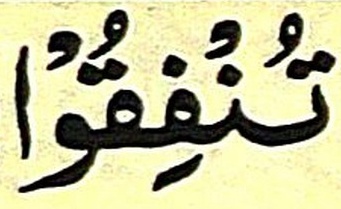 تُنْفِقُوْا